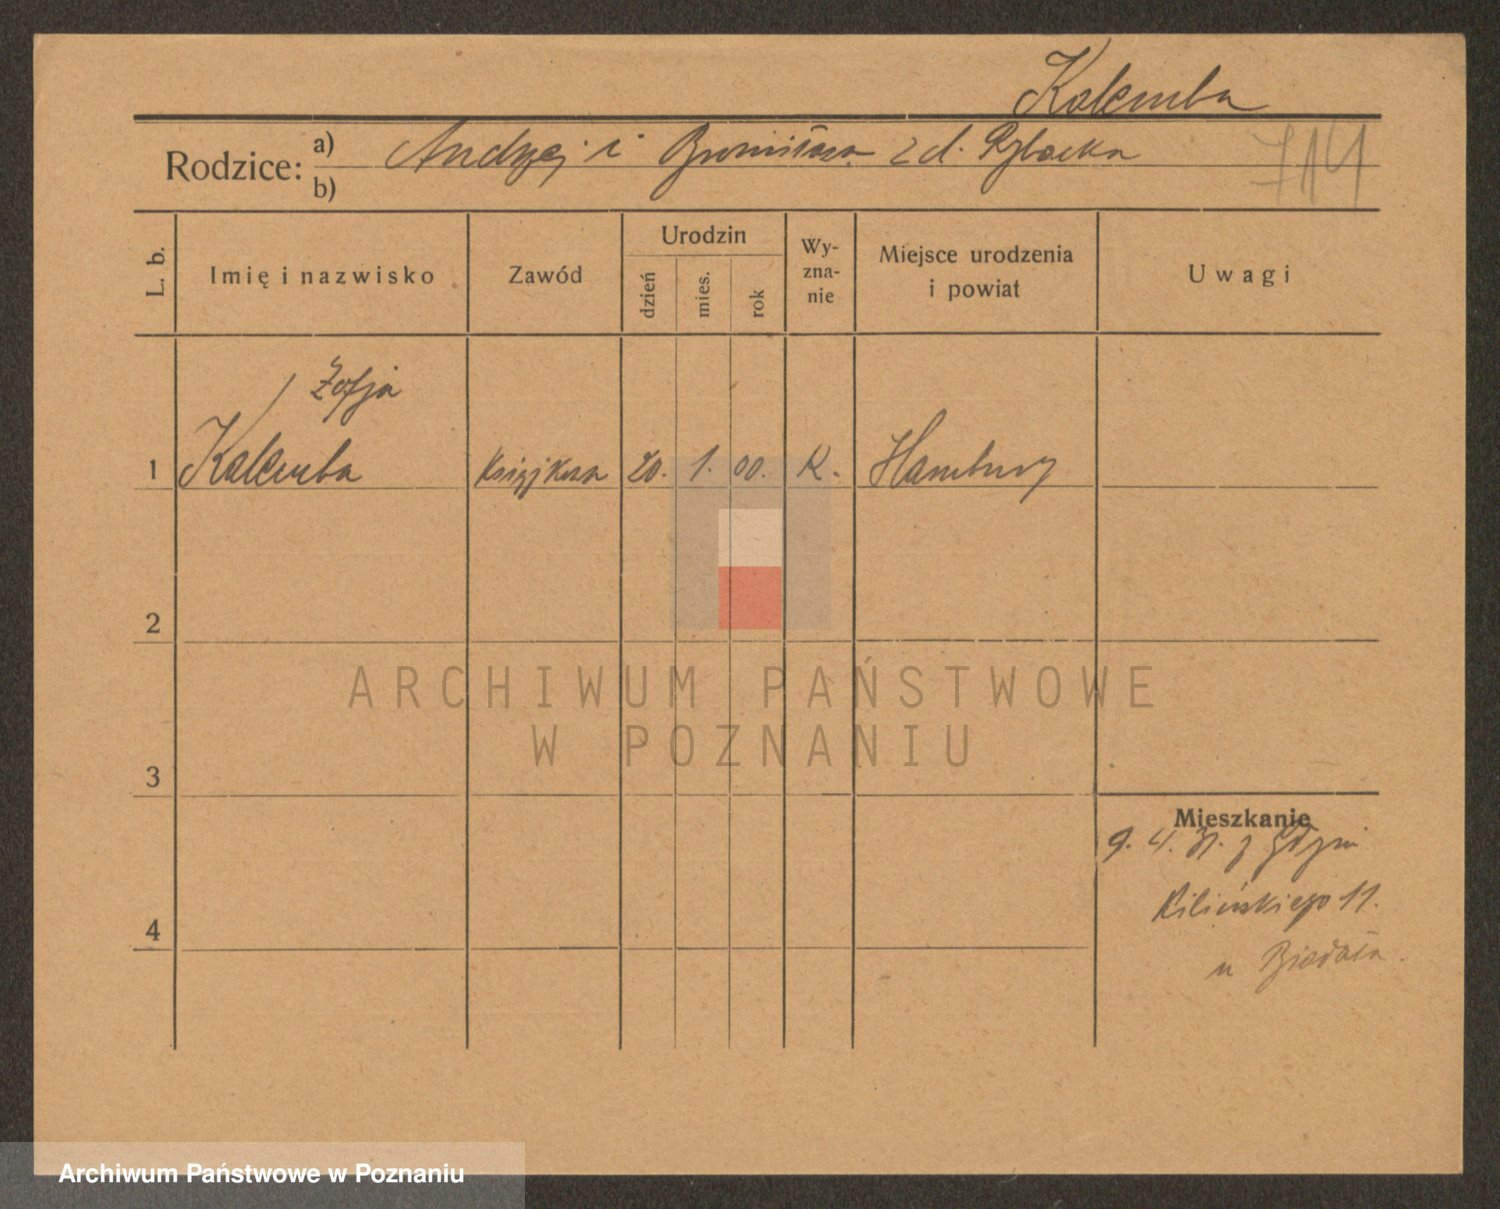 Kalemba
Rodzice: a) Andrzej i Bronisława z d. Rybacka
b)
714
L. b.
Imię i nazwisko
Zawód
Urodzin
dzień
mies.
rok
Wy-
zna-
nie
Miejsce urodzenia
i powiat
Uwagi
Zofja
1 Kalemba 20. 1. 00. K. Hamburg
2
ARCHIWUM PAŃSTWOWE
W POZNANIU
3
Mieszkanie
9. 4. 31. z Gdyni
Kilińskiego 11.
4
u
Archiwum Państwowe w Poznaniu